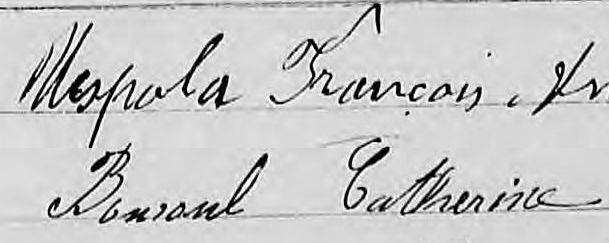 Mespola François,
Bonsoul Catherine